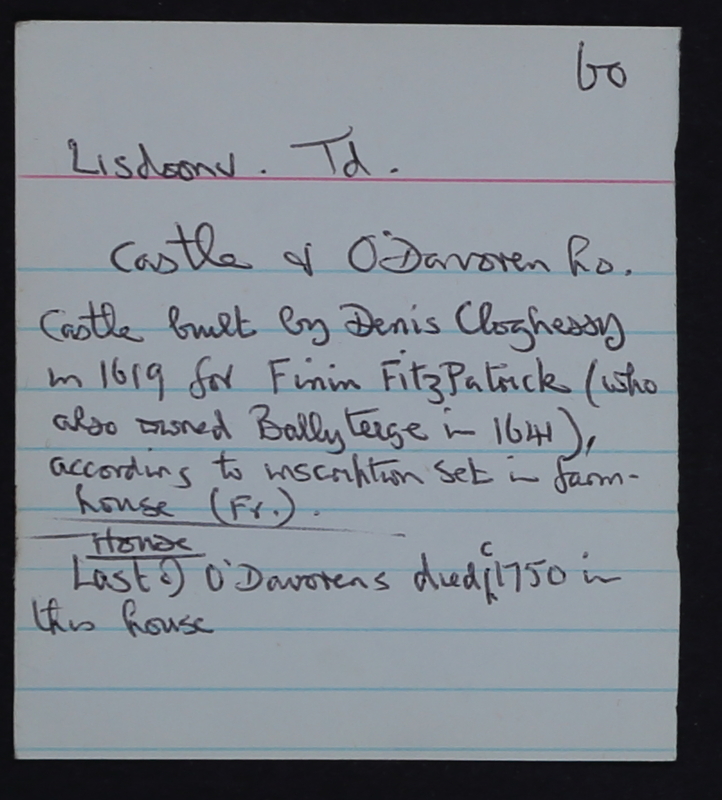 60
Lisdoony. Td.
Castle & O'Davoren ho.
Castle built by Denis Cloghessy
in 1619 for Finin FitzPatrick (who
also owned Ballyteige in 1641),
according to inscription set in farm-
house (Fr.).
House
Last of O'Davorens died c 1750 in
this house